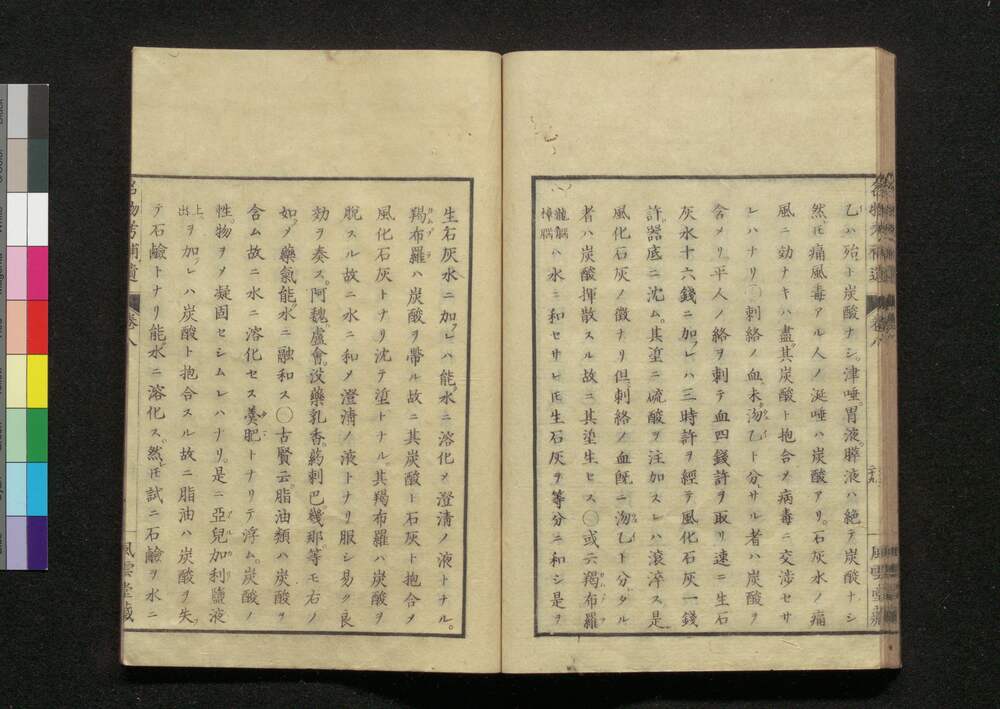 乙ハ殆ト炭酸ナシ。津唾。胃液。膵液ハ絶テ炭酸ナシ
然𪜈痛風毒アル人ノ涎唾ハ炭酸アリ。石灰水ノ痛
風ニ効ナキハ盡其炭酸ト抱合メ病毒ニ交渉セサ
レハナリ〇刺絡ノ血未泑乙ト分サル者ハ炭酸ヲ
含メリ平人ノ絡ヲ刺テ血四錢許ヲ取リ速ニ生石
灰水十六錢ニ加レハ三時許ヲ經テ風化石灰一錢
許。器底ニ沈ム。其埿ニ硫酸ヲ注加スレハ滾滓ス是
風化石灰ノ徴ナリ但刺絡ノ血既ニ泑乙ト分タル
者ハ炭酸揮散スル故ニ其埿生セス〇或云羯布羅
龍腦樟腦ハ水ニ和セサレ𪜈生石灰ヲ等分ニ和シ是ヲ
生石灰水ニ加レハ能水ニ溶化メ澄淸ノ液トナル。
羯布羅ハ炭酸ヲ帶ル故ニ其炭酸ト石灰ト抱合メ
風化石灰トナリ沈テ埿トナル其羯布羅ハ炭酸ヲ
脫スル故ニ水ニ和メ澄淸ノ液トナリ服シ易ク良
効ヲ奏ス。阿魏。盧會。沒藥乳香。葯刺巴。幾那。等モ右ノ
如メ藥氣能水ニ融和ス〇古賢云脂油類ハ炭酸ヲ
含ム故ニ水ニ溶化セス羹肥トナリテ浮ム。炭酸ノ
性。物ヲメ凝固セシムレハナリ。是ニ亞兒加利鹽液
上出ヲ加レハ炭酸ト抱合スル故ニ脂油ハ炭酸ヲ失
テ石鹼トナリ能水ニ溶化ス。然𪜈試ニ石鹼ヲ水ニ
名物考補遺
卷八
風雲堂藏